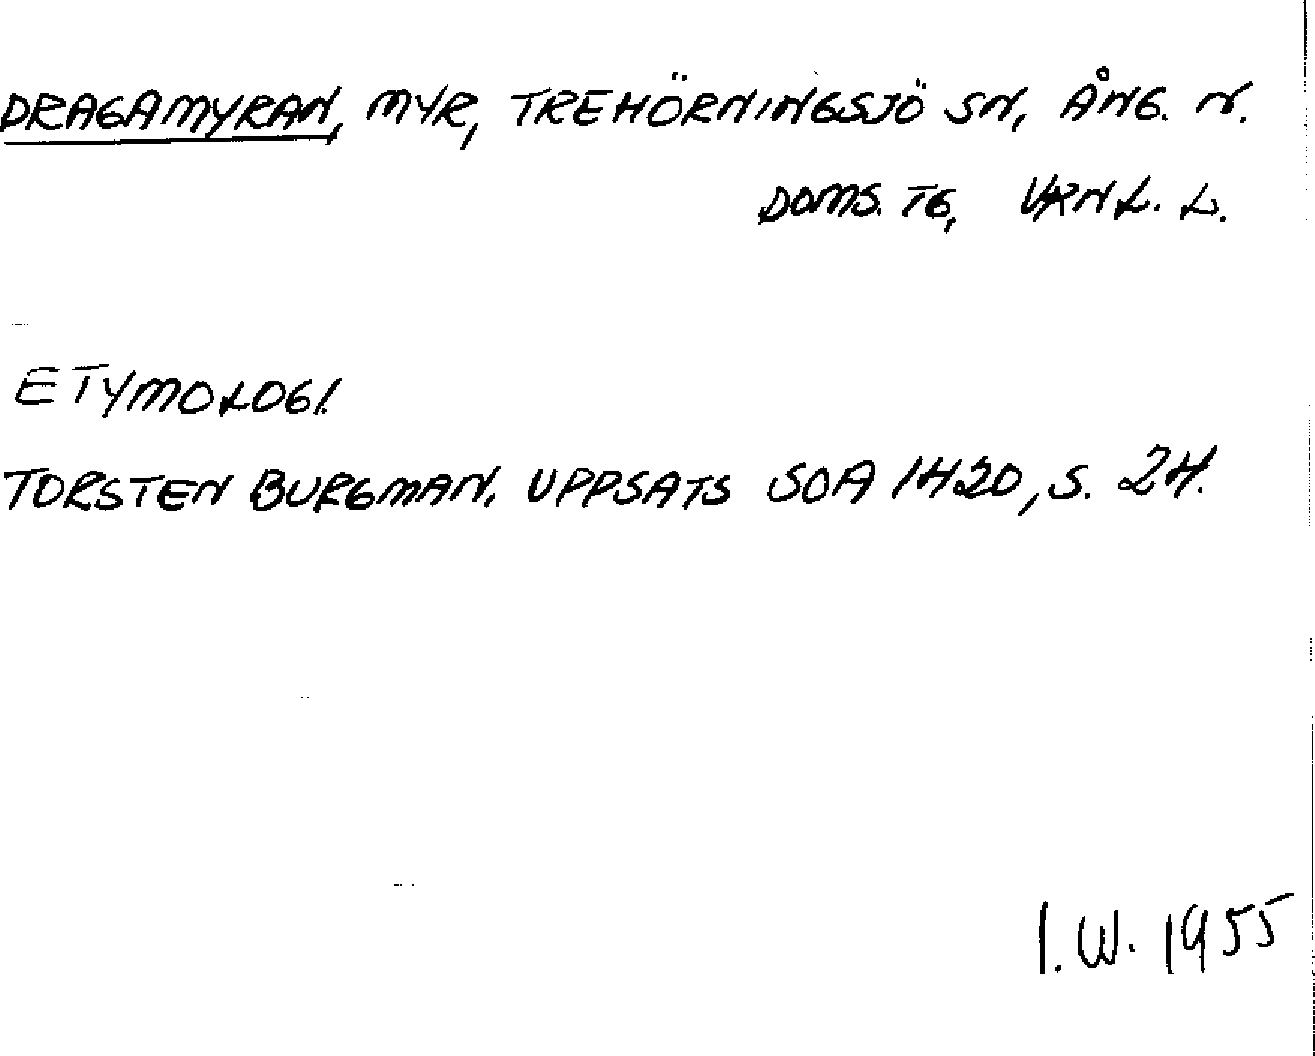 DRAGAMYRAN, MYR, TREHÖRNINGSJÖ SN, ÅNG. N.
DOMS. TG, VRNL. L.
ETYMOLOGI.
TORSTEN BURGMAN. UPPSATS SOA 1420, S. 24.
I. W. 1955